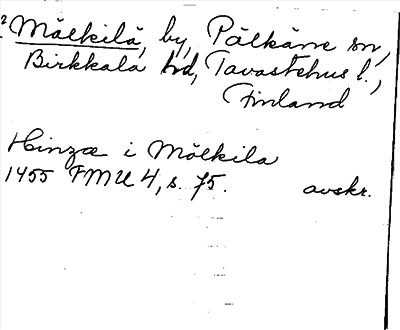 ? Mälkilä, by, Pälkäne sn,
Birkkala hd, Tavastehus l.,
Finland
Hinzæ i Mölkila
1455 FMU 4, s. 75. avskr.